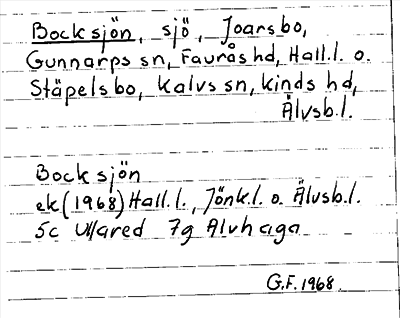 Bocksjön, sjö, Joarsbo,
Gunnarps sn, Fauråshd, Hall.l. o.
Stäpelsbo, Kalvs sn, kinds hd,
Älvsb.l.
Bocksjön
ek (1968) Hall.l., Jönk.l. o. Älvsb.l.
5c Ullared 7g Alvhaga
G.F. 1968.